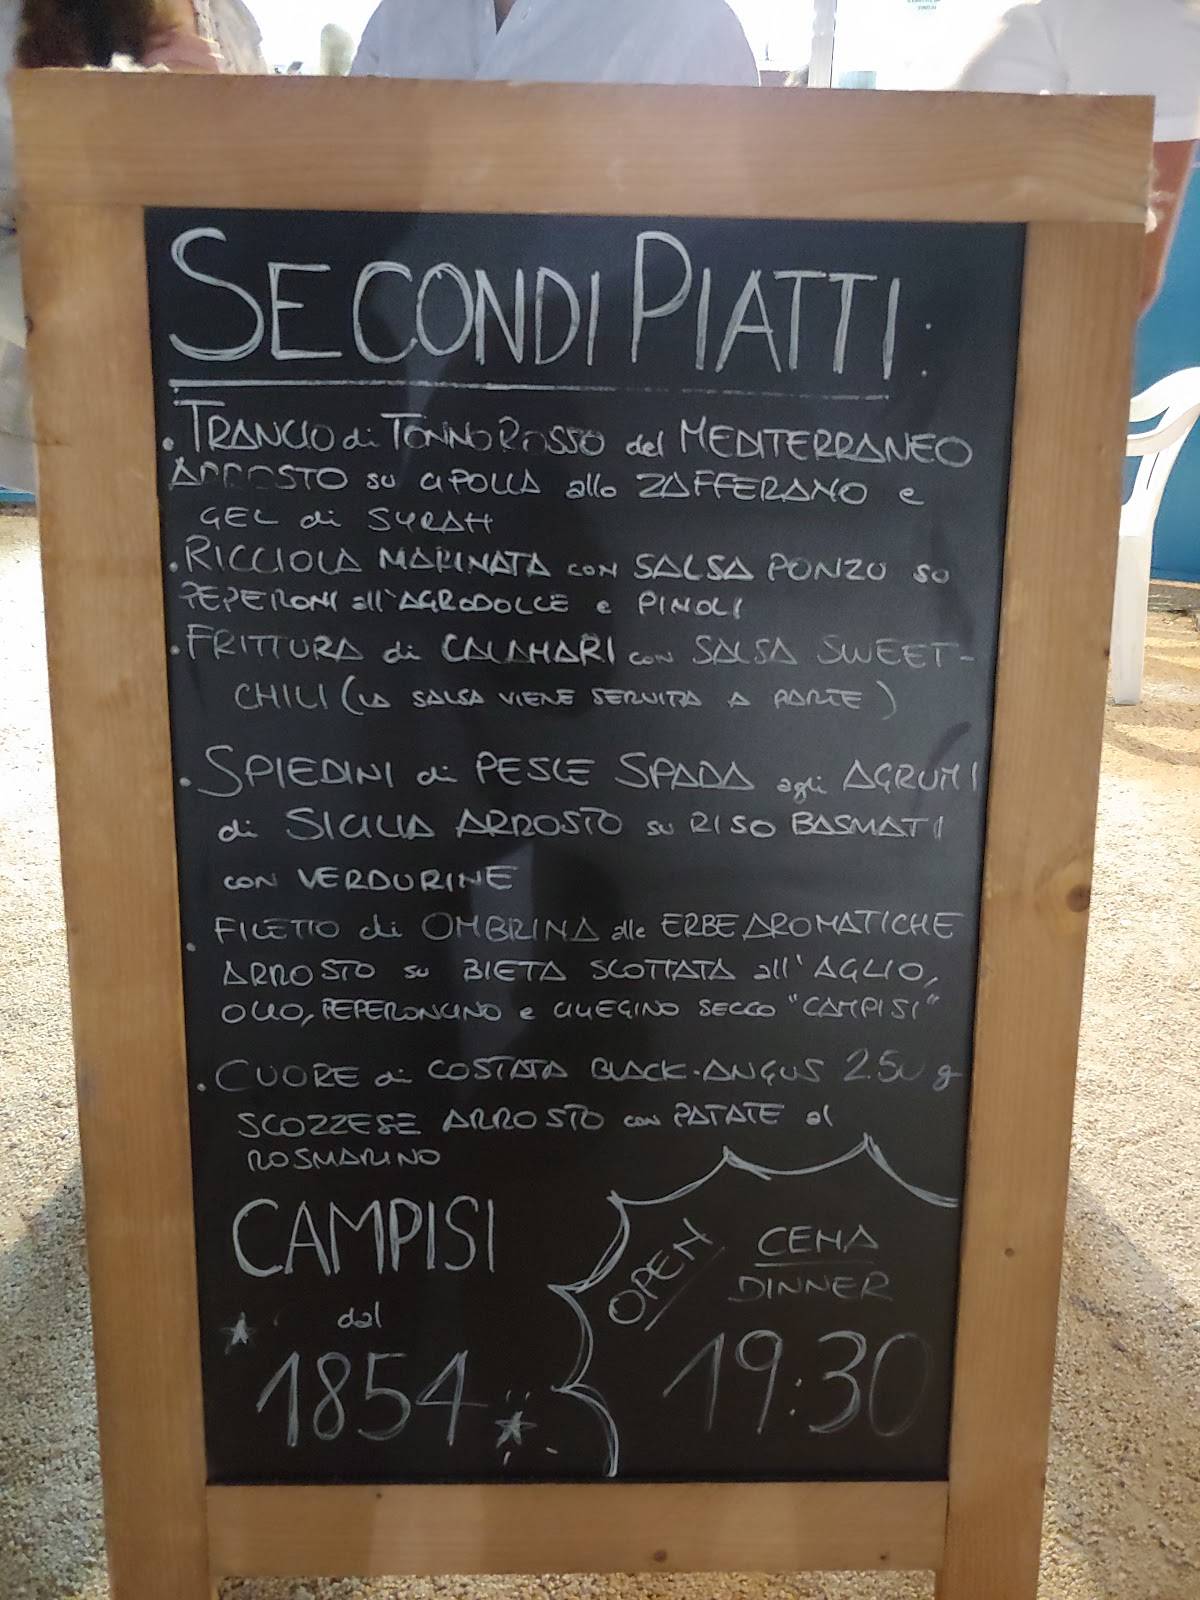 SECONDI PIATTI:
• TRANCIO di TONNO ROSSO del MEDITERRANEO
ARROSTO su CIPOLLA allo ZAFFERANO e
GEL di SYRAH
• RICCIOLA MARINATA con SALSA PONZU su
PEPERONI all'AGRODOLCE e PINOLI
• FRITTURA di CALAMARI con SALSA SWEET-
CHILI (LA SALSA VIENE SERVITA A PARTE)
• SPIEDINI di PESCE SPADA agli AGRUMI
di SICILIA ARROSTO su RISO BASMATI
con VERDURINE
• FILETTO di OMBRINA alle ERBE AROMATICHE
ARROSTO su BIETA SCOTTATA all'AGLIO,
OLIO, PEPERONCINO e CILIEGINO SECCO "CAMPISI"
• CUORE di COSTATA BLACK-ANGUS 250 g
SCOZZESE ARROSTO con PATATE al
ROSMARINO
CAMPISI
dal
1854
OPEN
CENA
DINNER
19:30